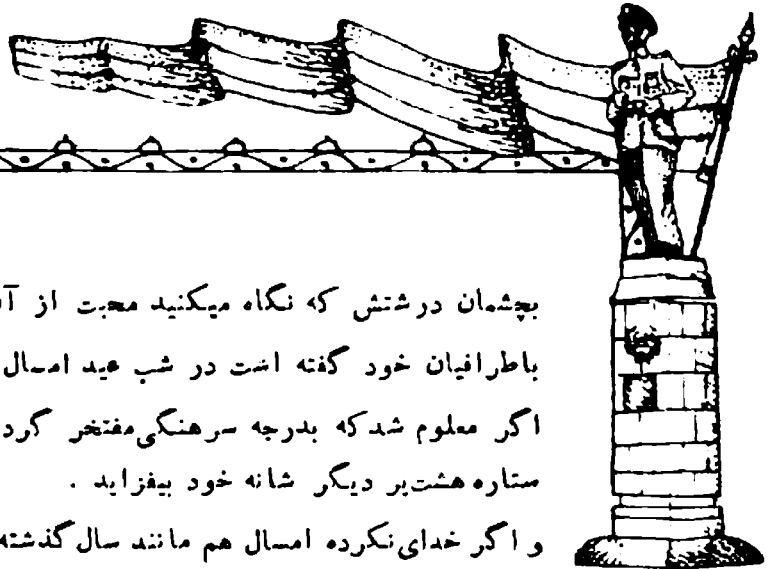 بچشمان درشتش که نگاه میکنید محبت از
باطرافیان خود گفته است در شب عید امسال
اگر معلوم شد که بدرجه سرهنگی مفتخر گرد
ستاره هشت‌پر دیگر شانه خود بیفزاید .
و اگر خدای نکرده امسال هم مانند سال گذشته